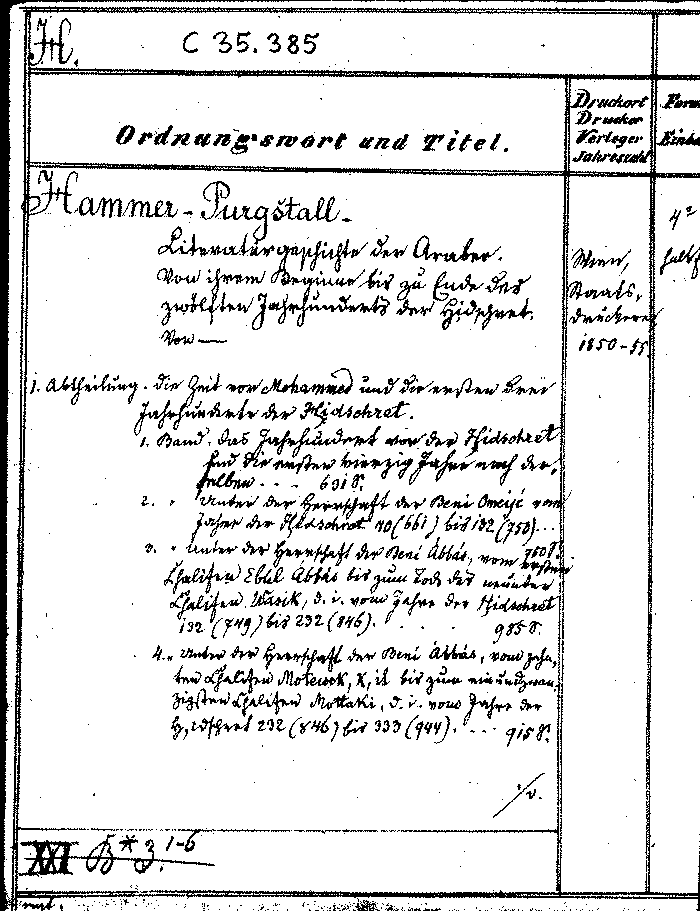 H.
C 35.385
Ordnungswort und Titel.
Druckort
Drucker
Verleger
Jahreszahl
Hammer-Purgstall.
4º
Literaturgeschichte der Araber.
Von ihrem Beginne bis zu Ende des
zwölften Jahrhunderts der Hidschret.
Von —
Wien,
Staats,
druckerei
1850-55.
1. Abtheilung. Die Zeit vor Mohammed und die ersten drei
Jahrhunderte der Hidschret.
1. Band. Das Jahrhundert vor der Hidschret
und die ersten vierzig Jahre nach der,
selben . . . 631 S.
2. " Unter der Herrschaft der Beni Omeije vom
Jahre der Hidschret 40 (661) bis 132 (750)...
750 S.
3. " Unter der Herrschaft der Beni Abbás, vom ersten
Chalifen Ebul Abbás bis zum Tode des neunten
Chalifen Wasik, d. i. vom Jahre der Hidschret
132 (749) bis 232 (846). . . . 985 S.
4. " Unter der Herrschaft der Beni Abbás, vom zehn,
ten Chalifen bis zum einundzwan,
zigsten Chalifen Mottaki, d. i. vom Jahre der
Hidschret 232 (846) bis 333 (944). ... 915 S.
XXI B* 3. 1-6